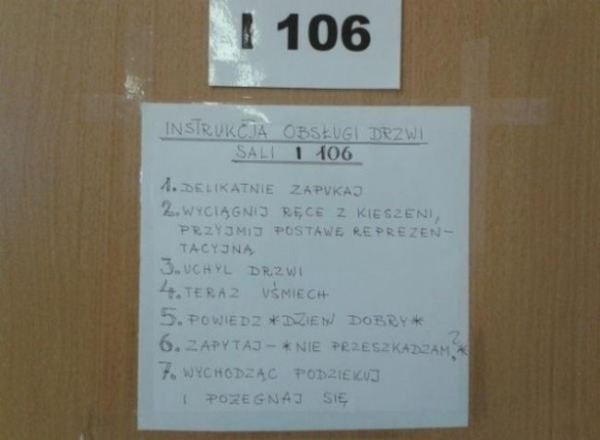 I 106
INSTRUKCJA OBSŁUGI DRZWI
SALI I 106
1. DELIKATNIE ZAPUKAJ
2. WYCIĄGNIJ RĘCE Z KIESZENI,
PRZYJMIJ POSTAWĘ REPREZEN-
TACYJNĄ
3. UCHYL DRZWI
4. TERAZ UŚMIECH
5. POWIEDZ *DZIEŃ DOBRY*
6. ZAPYTAJ - *NIE PRZESZKADZAM?*
7. WYCHODZĄC PODZIĘKUJ
I POŻEGNAJ SIĘ